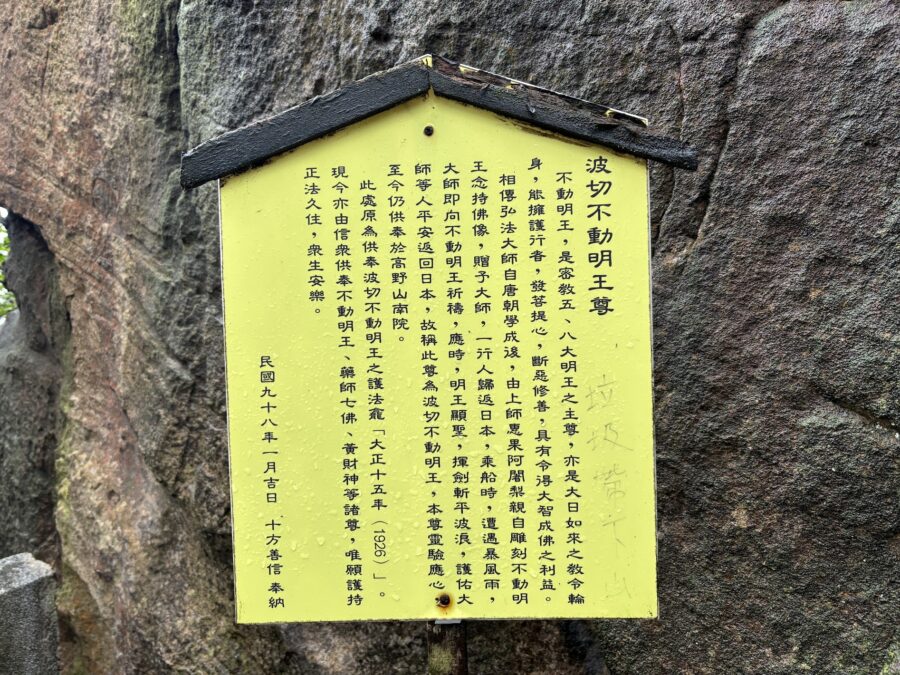 波切不動明王尊
不動明王，是密教五、八大明王之主尊，亦是大日如來之教令輪
身，能擁護行者，發菩提心，斷惡修善，具有令得大智成佛之利益。
相傳弘法大師自唐朝學成後，由上師惠果阿闍梨親自雕刻不動明
王念持佛像，贈予大師，一行人歸返日本，乘船時，遭遇暴風雨，
大師即向不動明王祈禱，應時，明王顯聖，揮劍斬平波浪，護佑大
師等人平安返回日本，故稱此尊為波切不動明王，本尊靈驗應心，
至今仍供奉於高野山南院。
此處原為供奉波切不動明王之護法龕「大正十五年（1926）」。
現今亦由信衆供奉不動明王、藥師七佛、黃財神等諸尊，唯願護持
正法久住，衆生安樂。
民國九十八年一月吉日　十方善信 奉納
垃圾帶下山